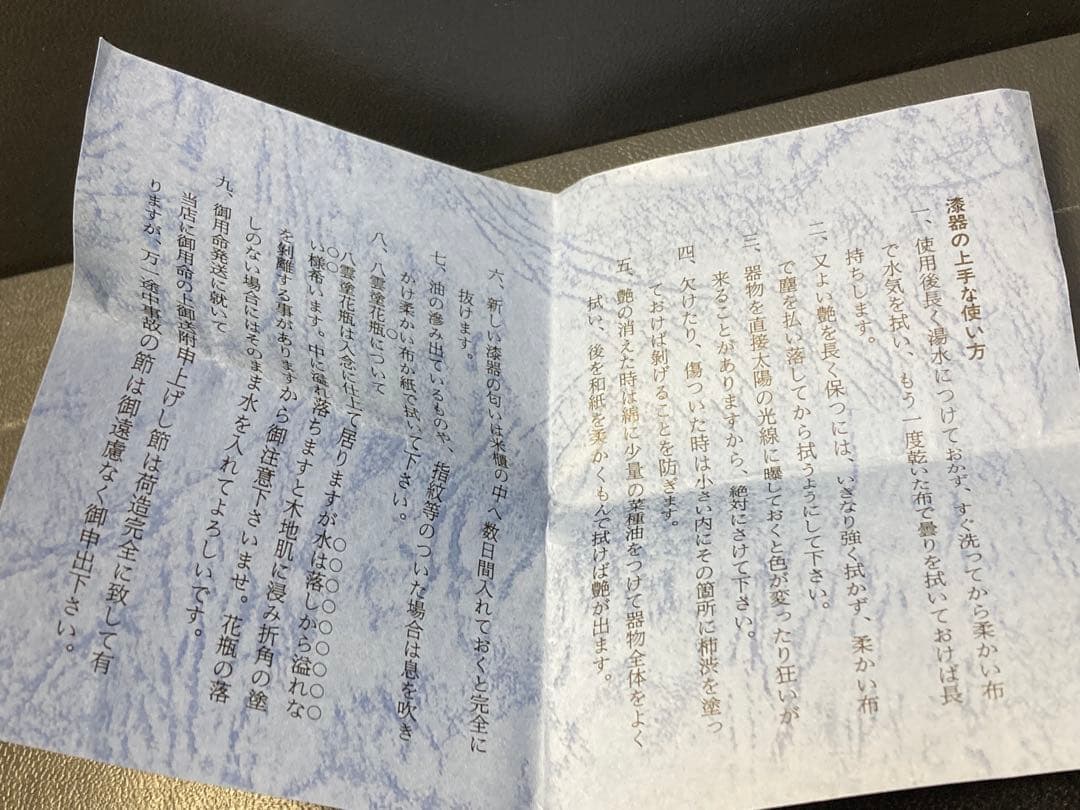 漆器の上手な使い方
一、使用後長く湯水につけておかず、すぐ洗ってから柔かい布
で水気を拭い、もう一度乾いた布で曇りを拭いておけば長
持ちします。
二、又よい艶を長く保つには、いきなり強く拭かず、柔かい布
で塵を払い落してから拭うようにして下さい。
三、器物を直接太陽の光線に曝しておくと色が変ったり狂いが
来ることがありますから、絶対にさけて下さい。
四、欠けたり、傷ついた時は小さい内にその箇所に柿渋を塗っ
ておけば剥げることを防ぎます。
五、艶の消えた時は綿に少量の菜種油をつけて器物全体をよく
拭い、後を和紙を柔かくもんで拭けば艶が出ます。
六、新しい漆器の匂いは米櫃の中へ数日間入れておくと完全に
抜けます。
七、油の滲み出ているものや、指紋等のついた場合は息を吹き
かけ柔かい布か紙で拭いて下さい。
八、八雲塗花瓶について
八雲塗花瓶は入念に仕上て居りますが水は落しから溢れな
い様希います。中に溢れ落ちますと木地肌に浸み折角の塗
を剥離する事がありますから御注意下さいませ。花瓶の落
しのない場合にはそのまま水を入れてよろしいです。
九、御用命発送に就いて
当店に御用命の上御送附申上げし節は荷造完全に致して有
りますが、万一途中事故の節は御遠慮なく御申出下さい。